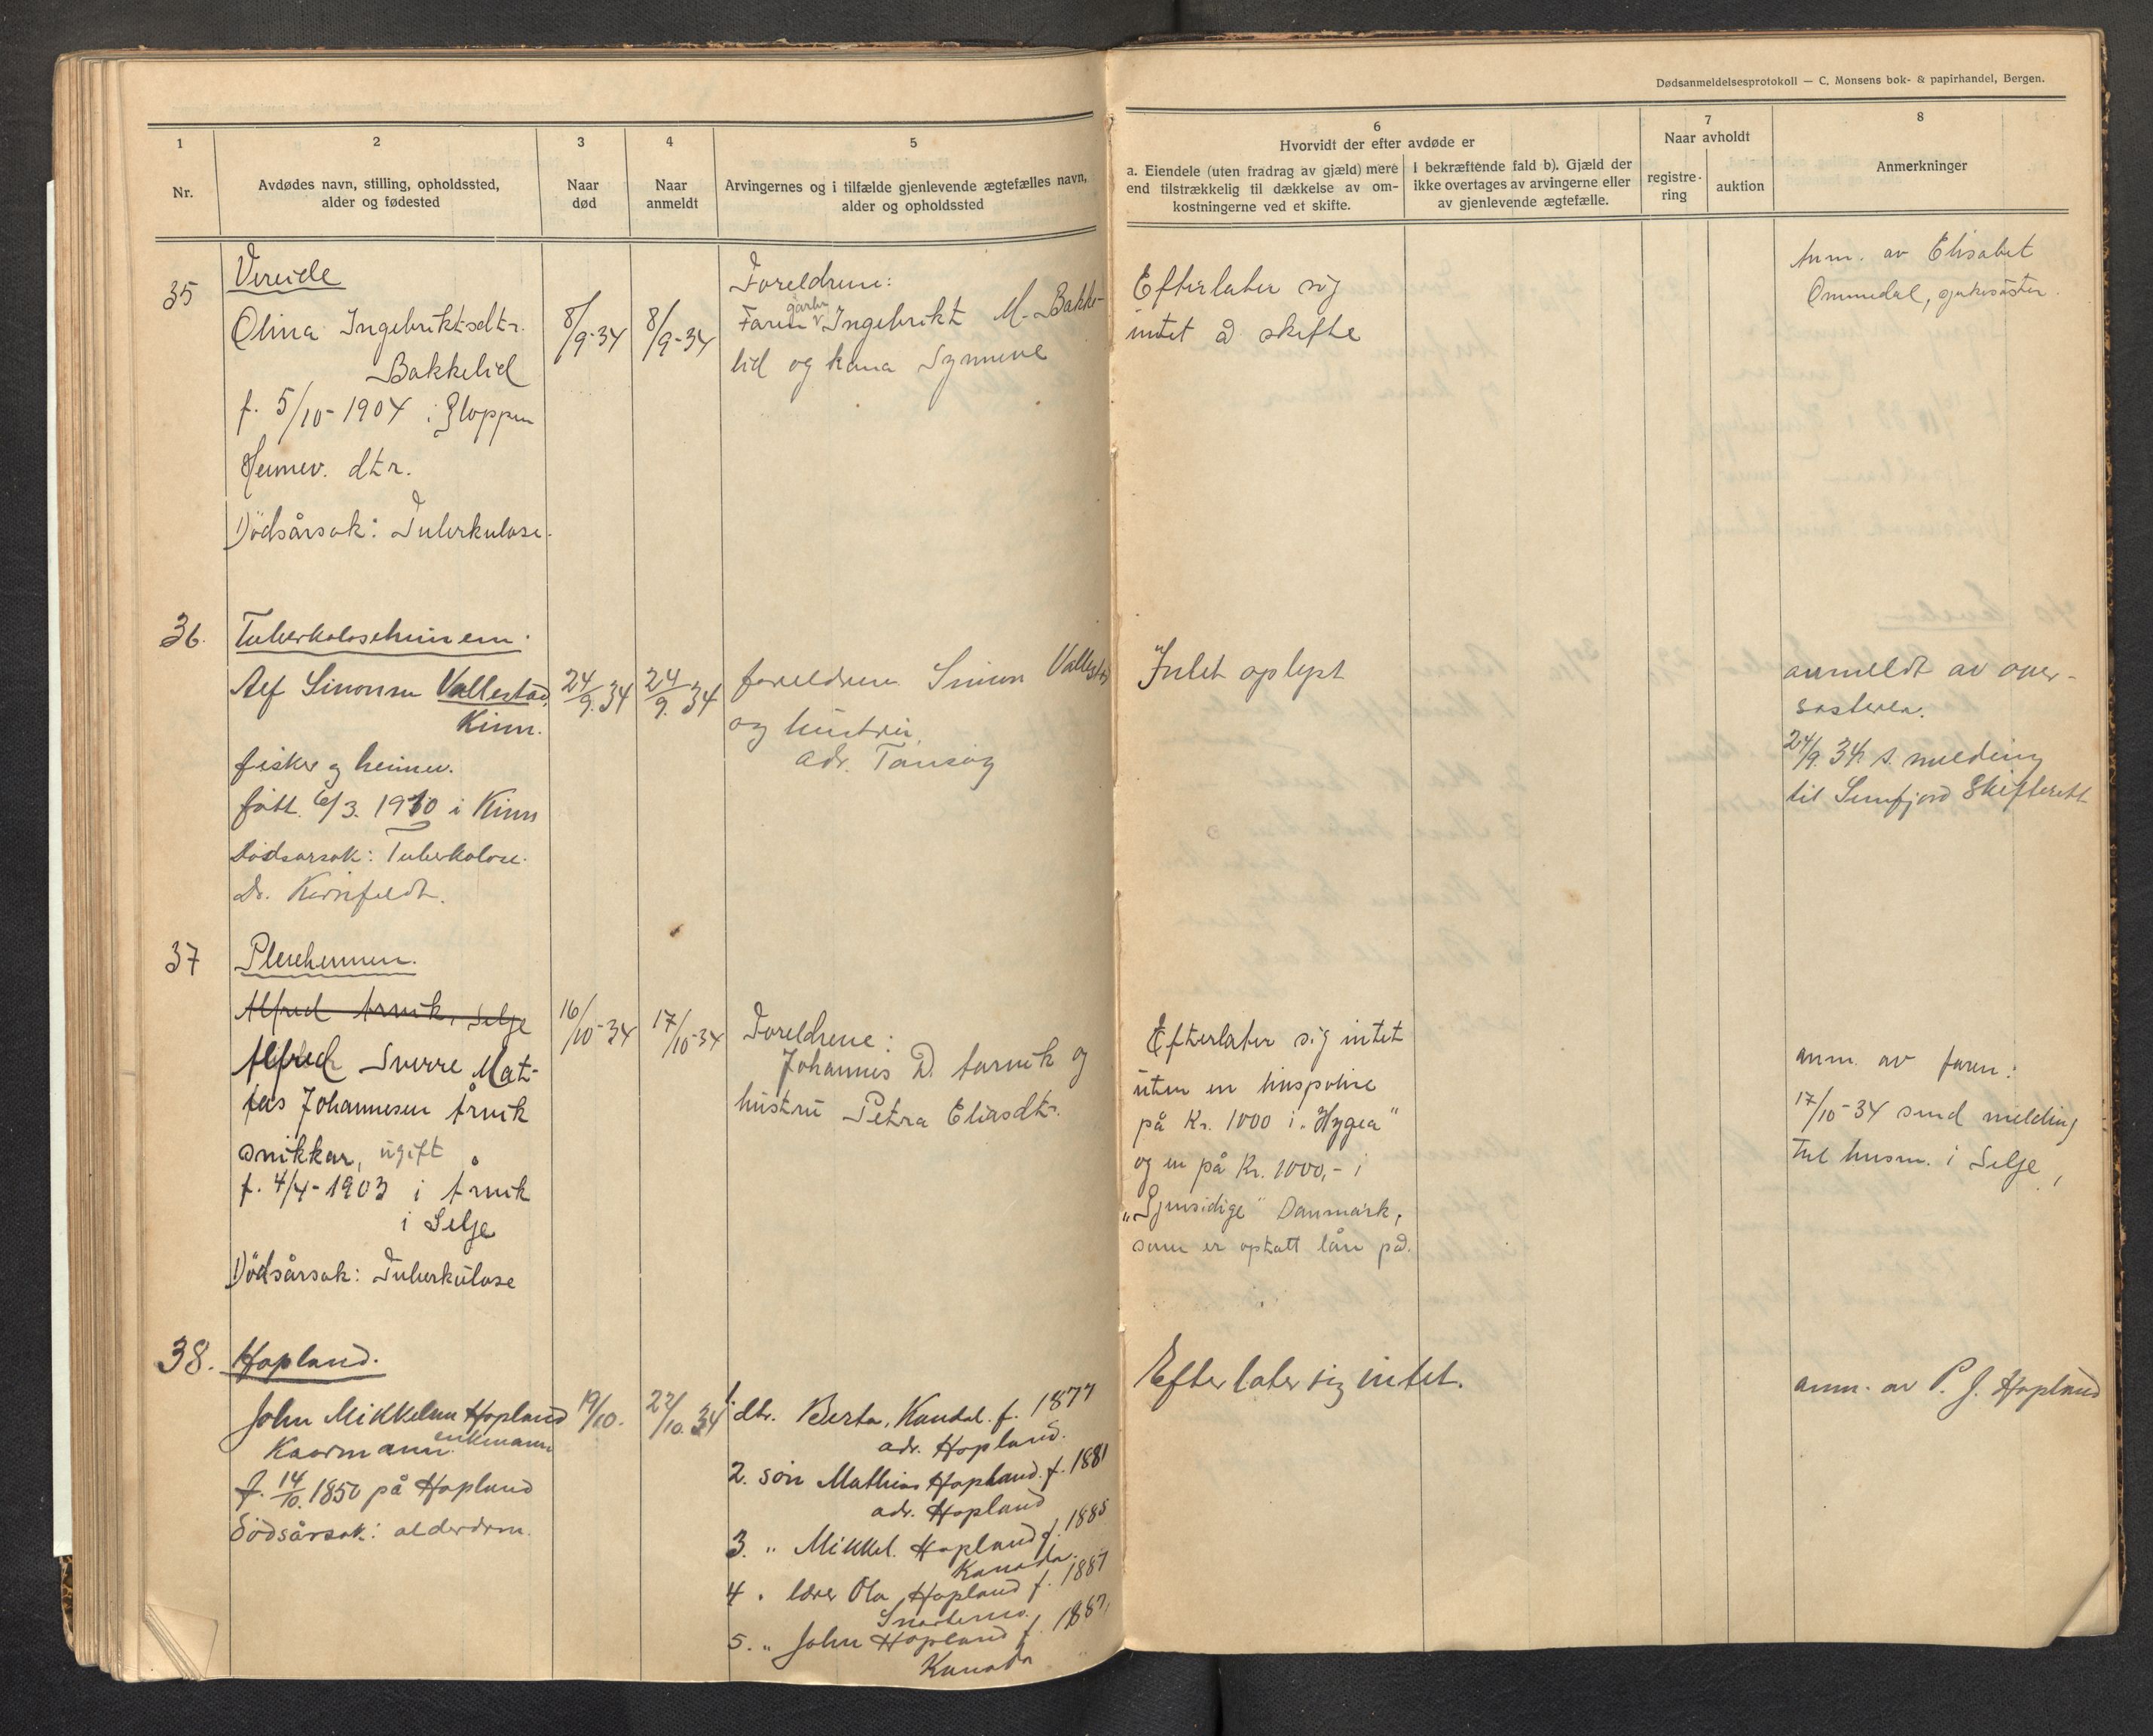 Dødsanmeldelsesprotokoll — C. Monsens bok- & papirhandel, Bergen.
1
2
3
4
5
6
7
8
Nr.
Avdødes navn, stilling, opholdssted,
alder og fødested
Naar
død
Naar
anmeldt
Arvingernes og i tilfælde gjenlevende ægtefælles navn,
alder og opholdssted
Hvorvidt der efter avdøde er
a. Eiendele (uten fradrag av gjæld) mere
end tilstrækkelig til dækkelse av om-
kostningerne ved et skifte.
I bekræftende fald b). Gjæld der
ikke overtages av arvingerne eller
av gjenlevende ægtefælle.
Naar avholdt
registre-
ring
auktion
Anmerkninger
35
Vereide
Olina Ingebriktsdtr.
Bakkelid
f. 5/10-1904 i Gloppen
Heimev. dtr.
Dödsårsak: Tuberkulose.
8/9-34
8/9-34
Foreldrene:
Faren garbr Ingebrikt M. Bakke-
lid og kona Synneve
Efterlater sig
intet å skifte
Anm. av Elisabet
Ommedal, sjukesöster.
36.
Tuberkuloseheimen.
Alf Simonsen Vallestad,
Kinn.
fisker og heimev.
født. 6/3. 1910 i Kinn
Dødsårsak: Tuberkolose.
Dr.
24/9.34
24/9.34
foreldrene Simon Vallestad
og hustru,
adr. Tansøy
Intet oplyst
anmeldt av over-
søsteren.
24/9.34 s. melding
til Sunnfjord Skifterett
37
Pleieheimen.
Alfred Årvik, Selje
Alfred Sverre Mat-
tias Johannesen Årvik
snikkar, ugift
f. 4/4-1903 i Årvik
i Selje
Dödsårsak: Tuberkulose
16/10-34
17/10-34
Foreldrene:
Johannes D. Aarvik og
hustru Petra Eliasdtr.
Efterlater sig intet
uten en livspolise
på Kr. 1000 i "Hygea"
og en på Kr. 1000,- i
"Gjensidige" Danmark,
som er optatt lån på.
anm. av faren:
17/10-34 send melding
til lensm. i Selje,
38.
Hopland.
John Mikkelsen Hopland
Kaarmann enkmann
f. 14/10. 1850 på Hopland
Dödsårsak: alderdom.
19/10.
22/10.34
1. dtr. Berta, Kandal. f. 1877
adr. Hopland.
2. søn Mathias Hopland. f. 1881
adr. Hopland
3. " Mikkel. Hopland f. 1885
Kanada.
4. lærer Ola Hopland f. 1887
5. " John Hopland f. 1887,
Kanada
Efterlater sig intet.
anm. av P. J. Hopland